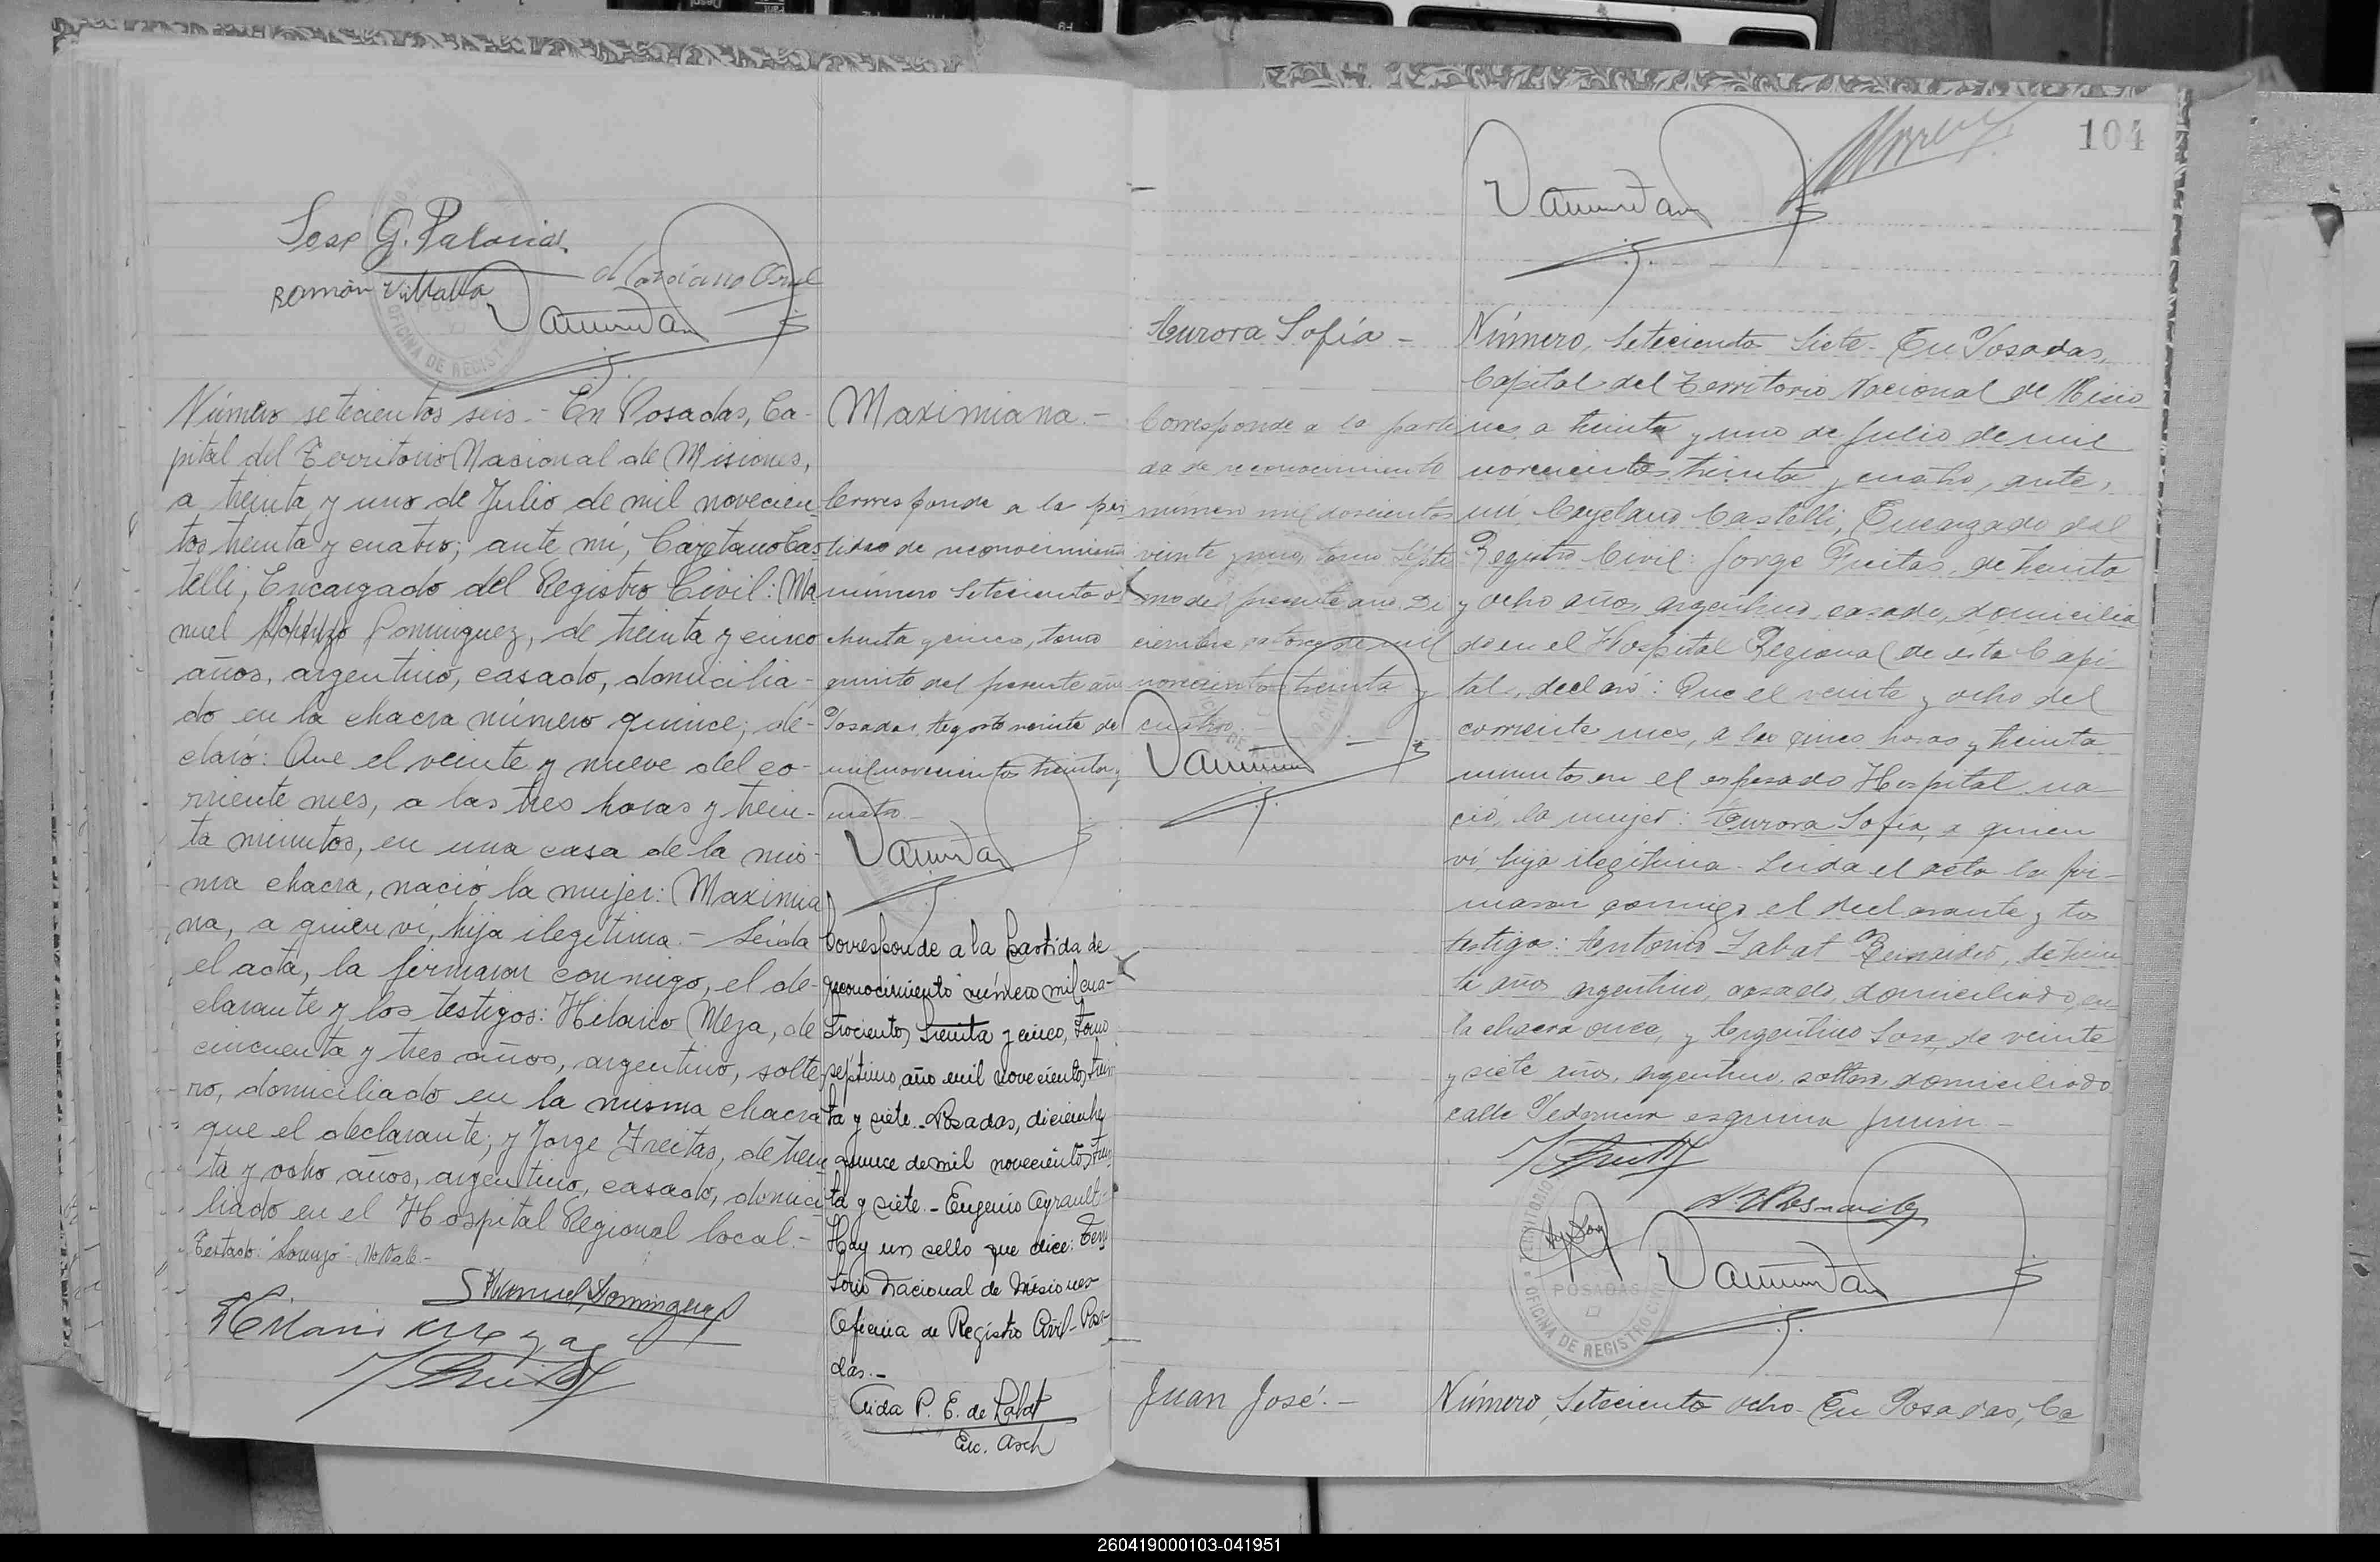 José G. Palacios
Ramón Villalba
Número setecientos seis.- En Posadas, Ca-
pital del Territorio Nacional de Misiones,
a treinta y uno de Julio de mil novecien
tos treinta y cuatro; ante mí, Cayetano Cas
telli, Encargado del Registro Civil: Ma
nuel Lorenzo Dominguez, de treinta y cinco
años, argentino, casado, domicilia-
do en la chacra número quince; de-
claró: Que el veinte y nueve del co-
rriente mes, a las tres horas y trein-
ta minutos, en una casa de la mis-
ma chacra, nació la mujer: Maximia
na, a quien ví, hija ilegítima.- Leída
el acta, la firmaron conmigo, el de-
clarante y los testigos: Hilario Meza, de
cincuenta y tres años, argentino, solte-
ro, domiciliado en la misma chacra
que el declarante; y Jorge Freitas, de trein
ta y ocho años, argentino, casado, domici
liado en el Hospital Regional local.-
Testado: "Lorenzo"- No Vale-
S Manuel Dominguez
Hilario Meza
Maximiana.-
Corresponde a la par
tida de reconocimiento
número setecientos o
chenta y cinco, tomo
quinto del presente año
Posadas, Agosto veinte de
mil novecientos treinta y
cuatro.-
Corresponde a la partida de
reconocimiento número mil cua-
trocientos treinta y cinco, tomo
séptimo, año mil novecientos trein
ta y siete.- Posadas, diciembre
quince de mil novecientos trein
ta y siete.- Eugenio Ayrault-
Hay un sello que dice: Terri
torio Nacional de Misiones
Oficina de Registro Civil- Posa-
das.-
Aida P. E. de Labat
Enc. Arch
104
Aurora Sofía -
Corresponde a la parti
da de reconocimiento
número mil doscientos
veinte y uno, tomo sépti
mo del presente año. Di
ciembre, catorce de mil
novecientos treinta y
cuatro.
Número, Setecientos Siete- En Posadas,
Capital del Territorio Nacional de Misio
nes, a treinta y uno de Julio de mil
novecientos treinta y cuatro, ante,
mí, Cayetano Castelli, Encargado del
Registro Civil: Jorge Freitas, de treinta
y ocho años, argentino, casado, domicilia
do en el Hospital Regional de ésta Capi
tal, declaró: Que el veinte y ocho del
corriente mes, a las cinco horas y treinta
minutos en el expresado Hospital na-
ció, la mujer: Aurora Sofía, a quien
ví, hija ilegítima- Leída el acta la fir-
maron conmigo el declarante y los
testigos: Antonio Zabat, de trein
ta años argentino, casado, domiciliado, en
la chacra once, y Argentino Sosa, de veinte
y siete años, argentino, soltero, domiciliado
calle Pedernera esquina Junín.-
TERRITORIO
POSADAS
OFICINA DE REGISTRO CIVIL
Juan José.-
Número, Setecientos ocho- En Posadas, Ca
260419000103-041951